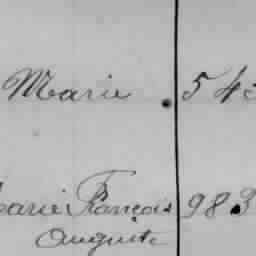 Marie 54
Marie François 983
Auguste